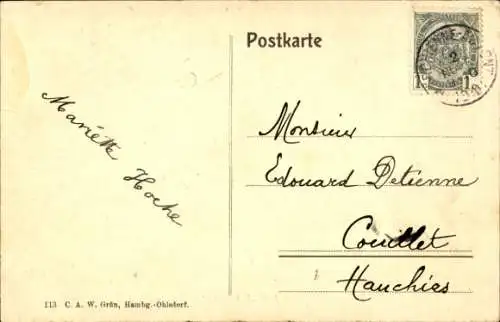 Postkarte
1 1
Mariette
Hoche
Monsieur
Edouard Detienne
Couillet
Hauchies
113 C. A. W. Grün, Hambg.-Ohlsdorf.